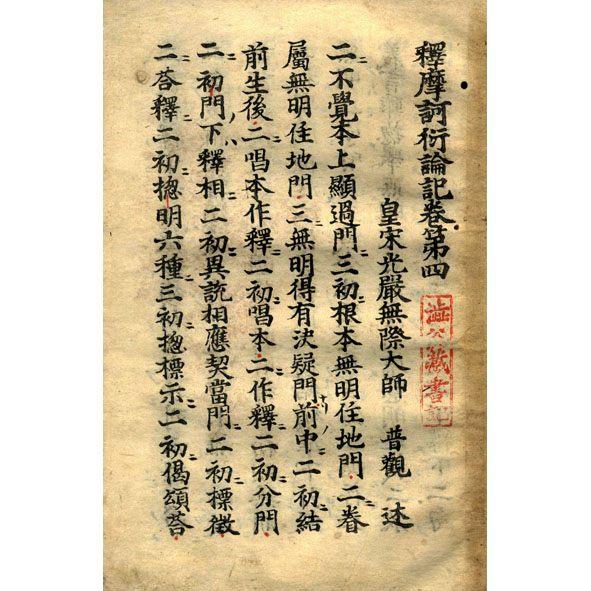 釋摩訶衍論記卷第四
皇宋光嚴無際大師　普觀　述
二不覺本上顯過門三初根本無明住地門二眷
屬無明住地門三無明得有決疑門前中二初結
前生後二唱本作釋二初唱本二作釋二初分門
二初門下釋相二初異說相應契當門二初標徵
二荅釋二初揔明六種三初揔標示二初偈頌荅
藏書